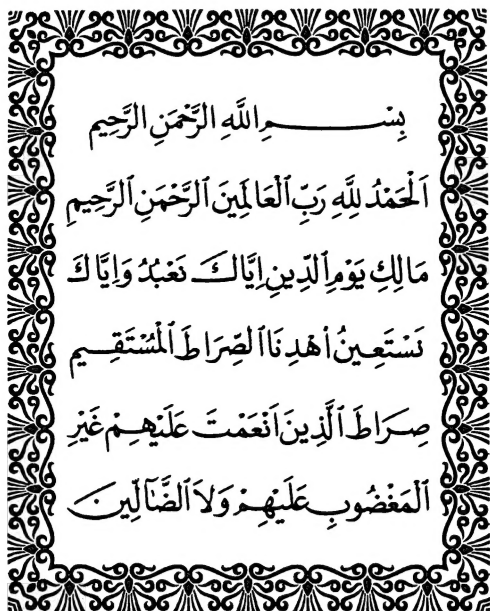 بِسْـــــــمِ اللَّهِ الرَّحْمَنِ الرَّحِيم
اَلْحَمْدُ لِلَّهِ رَبِّ ٱلْعَالَمِينَ ٱلرَّحْمَنِ ٱلرَّحِيمِ
مَالِكِ يَوْمِ ٱلدِّينِ اِيَّاكَ نَعْبُدُ وَاِيَّاكَ
نَسْتَعِينُ اُهْدِنَا ٱلصِّرَاطَ ٱلْمُسْتَقِـيم
صِرَاطَ ٱلَّذِينَ اَنْعَمْتَ عَلَيْهِمْ غَيْرِ
ٱلْمَغْضُوبِ عَلَيْهِمْ وَلاَ ٱلضَّآلِّينَ